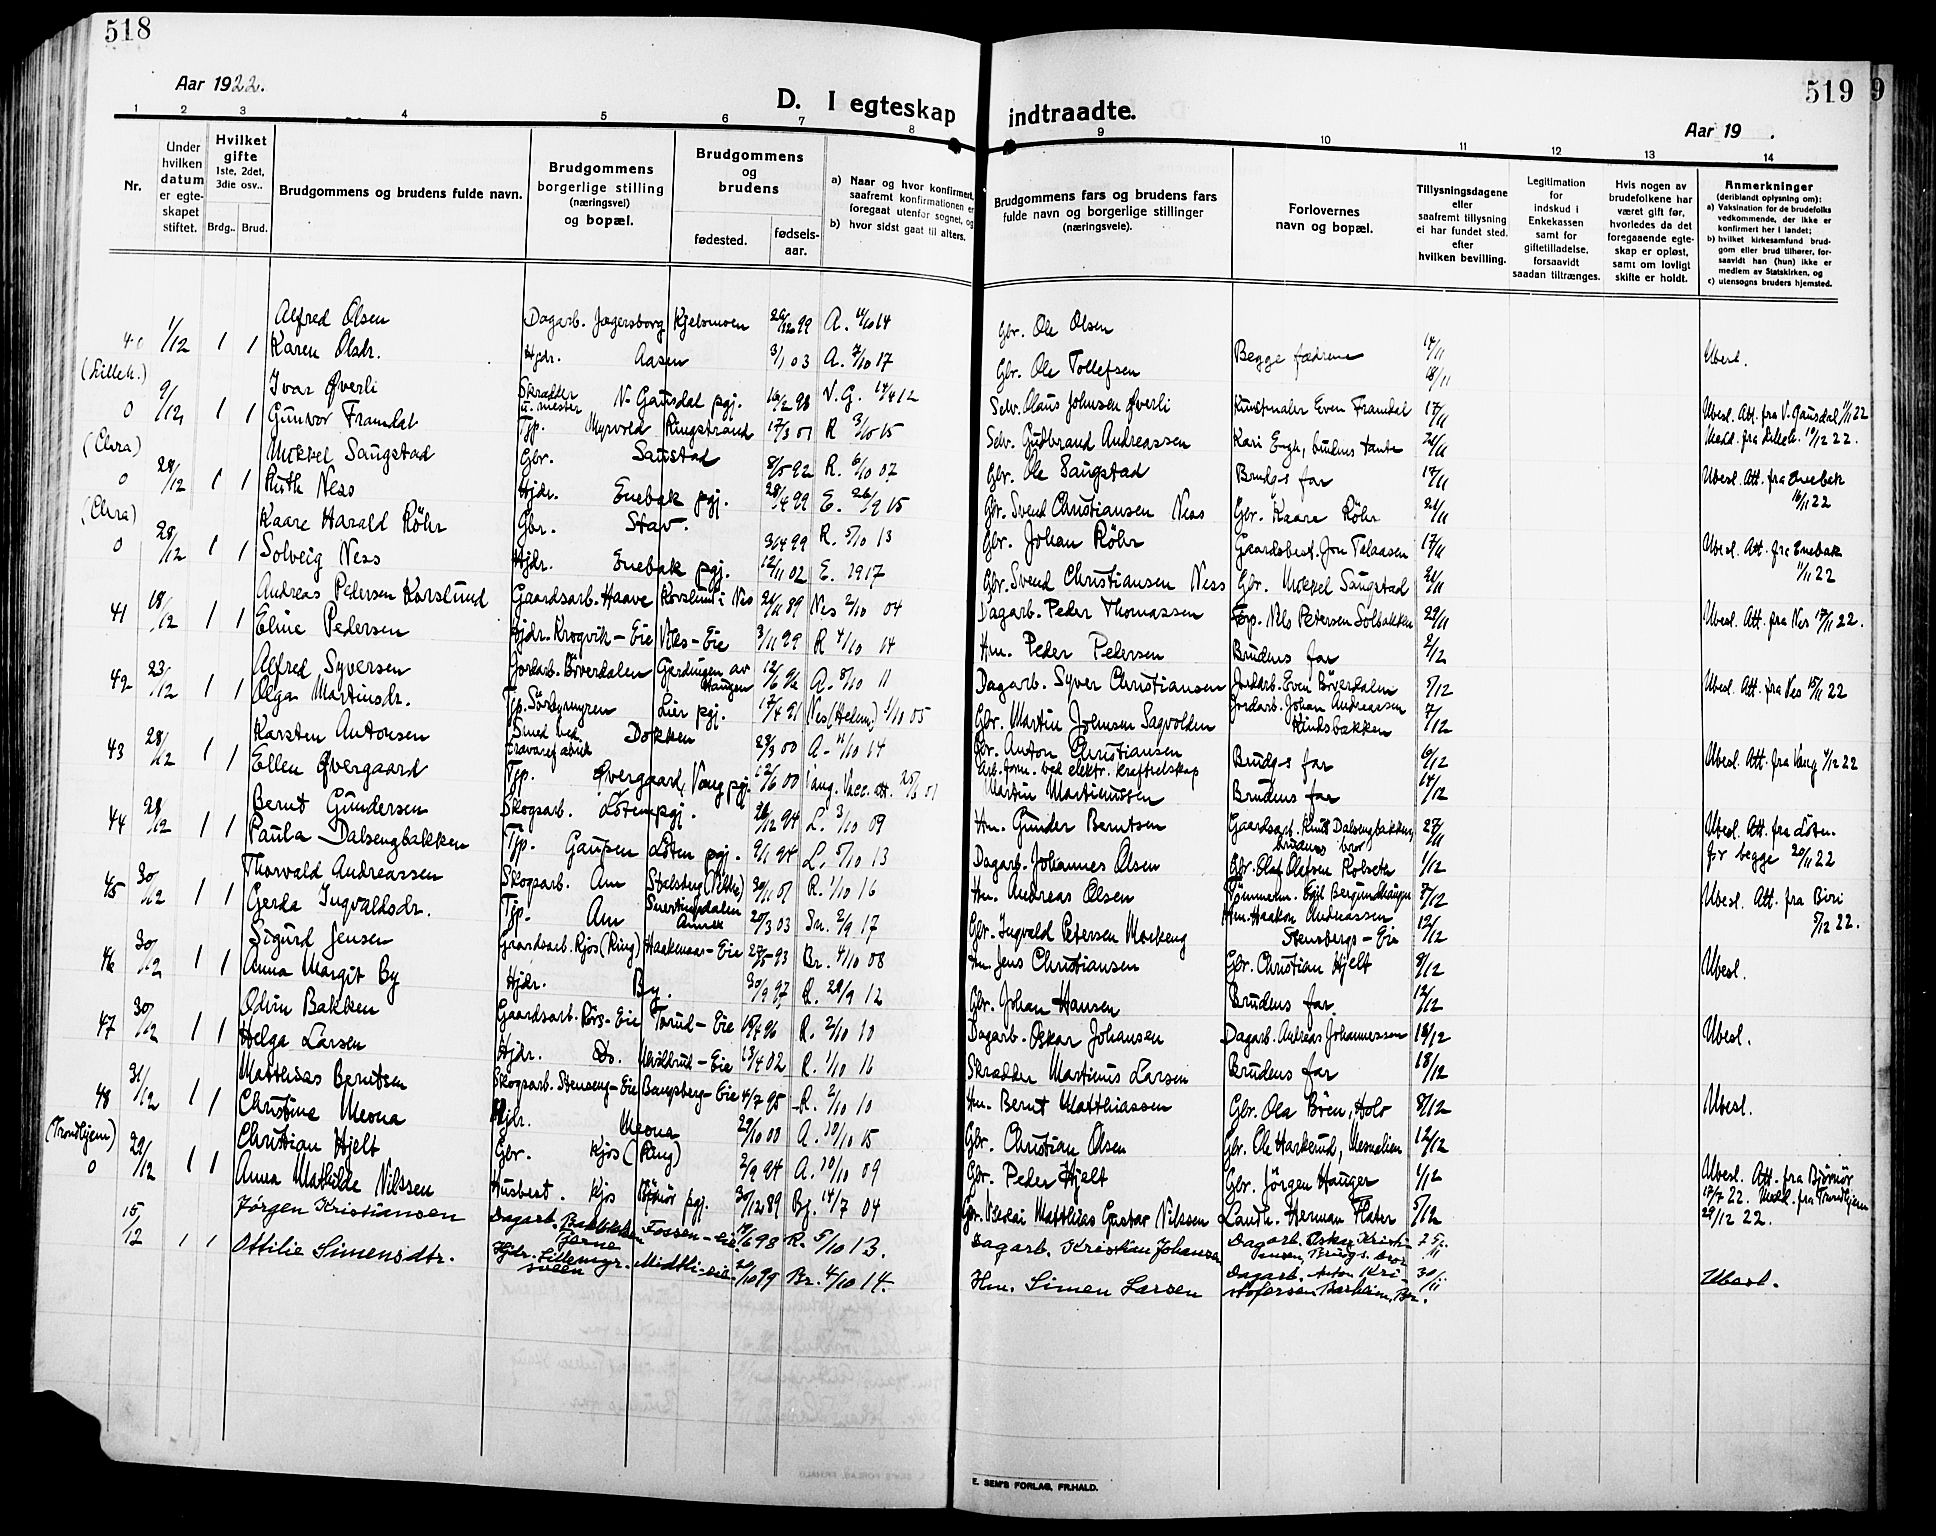 518
Aar 1922.
D. I egteskap
1 2 3 4 5 6 7 8
Nr.
Under hvilken datum er egte-skapet stiftet.
Hvilket gifte
1ste, 2det, 3die osv..
Brdg.. Brud.
Brudgommens og brudens fulde navn.
Brudgommens borgerlige stilling (næringsvei) og bopæl.
Brudgommens og brudens
fødested.
fødsels-aar.
a) Naar og hvor konfirmert, saafremt konfirmationen er foregaat utenfor sognet, og
b) hvor sidst gaat til alters.
1/12 1 1 Alfred Olsen Dagarb. Jægersborg Kjelsmoen A. 14
Karen Olsdr. Hjdr. Aasen 3/1 03 A. 7/10 17
(Lilleh.)
0 9/12 1 1 Ivar Øverli Skrædder N. Gausdal pgj. 16/2 98 V. G. 14/4 12
Gunvor Framdal Tjp. Myrvold Ringstrand 17/3 01 R 3/10 15
(Elvra)
0 28/12 1 1 Mikkel Saugstad Gbr. Saustad 8/5 92 R. 6/10 07
Ruth Ness Hjdr. Enebak pgj. 28/4 99 E. 26/9 15
(Elvra)
0 28/12 1 1 Kaare Harald Röhr Gbr. Stav. 3/4 99 R. 5/10 13
Solveig Ness Hjdr. Enebak pgj. 12/11 02 E. 1917
41 18/12 1 1 Andreas Pedersen Korslund Gaardsarb. Haave Korslund i Nes 21/11 89 Nes 2/10 04
Eline Pedersen Hjdr. Krogvik-Eie 3/11 99 R 4/10 14
42 23/12 1 1 Alfred Syversen Jordarb. Böverdalen Gjerdingen av Haugen 12/6 96 A. 8/10 11
Olga Martinsdr. Tjp. Sørbymyren Lier pgj. 17/4 91 Nes (Helem) 1/10 05
43 28/12 1 1 Karsten Antonsen Smed ved travarefabrik Dokken 28/3 00 A. 11/10 14
Ellen Øvergaard Tjp. Øvergaard, Vang pgj. 12/6 00 Vang. Vacc. att. 25/3 01
44 28/12 1 1 Bernt Gundersen Skogsarb. Löten pgj. 26/12 94 L. 3/10 09
Paula Dalsengbakken Tjp. Gaupen Löten pgj. 9/1 94 L. 5/10 13
45 30/12 1 1 Thorvald Andreassen Skogsarb. Am 30/11 01 R. 1/10 16
Gerda Ingvaldsdr. Tjp. Am Snertingdalen Annex 20/3 03 Sn. 2/9 17
46 30/12 1 1 Sigurd Jensen Gaardsarb. Kjos (Ring) Haakenaas-Eie 27/5 93 Br. 4/10 08
Anna Margit By Hjdr. By. 30/9 97 R. 29/9 12
47 30/12 1 1 Odvin Bakken Gaardsarb. Pörs-Eie Torud-Eie R. 2/10 10
Helga Larsen Hjdr. Ds. 13/4 02 R. 1/10 16
48 31/12 1 1 Matthias Berntsen Skogsarb. Stenseng-Eie Bangsberg-Eie 4/7 95 R. 2/10 10
Christine Meona Hjdr. Meona 29/10 00 A. 10/10 15
(Trondhjem)
0 29/12 1 1 Christian Hjelt Gbr. Kjos (Ring) 2/9 94 A. 10/10 09
Anna Mathilde Nilssen Husbest. Kjos Björnör pgj. 30/12 89 Bj. 14/7 04
15/12 1 1 Jørgen Kristiansen Dagarb. Fossen-eie 98 R. 5/10 13.
Ottilie Simensdtr. Hjdr. Lillemyrsveen Midtli-eie 20/10 99 Br. 4/10 14.
519
indtraadte.
Aar 19 .
9 10 11 12 13 14
Brudgommens fars og brudens fars fulde navn og borgerlige stillinger (næringsveie).
Forlovernes navn og bopæl.
Tillysningsdagene eller saafremt tillysning ei har fundet sted. efter hvilken bevilling.
Legitimation for indskud i Enkekassen samt for giftetilladelse, forsaavidt saadan tiltrænges.
Hvis nogen av brudefolkene har været gift før, hvorledes da det foregaaende egte-skap er opløst, samt om lovligt skifte er holdt.
Anmerkninger
(deriblandt oplysning om):
a) Vaksination for de brudefolks vedkommende, der ikke er konfirmert her i landet;
b) hvilket kirkesamfund brud-gom eller brud tilhører, for-saavidt han (hun) ikke er medlem av Statskirken, og
c) utensogns bruders hjemsted.
Gbr. Ole Olsen
Gbr. Ole Tollefsen Begge fædrene 18/11 Ubesl.
Selv. Olaus Johnsen Øverli Kunstmaler Even Framdal 17/11 Ubesl. Att. fra V. Gausdal 1/11 22
Selv. Gudbrand Andreassen Kari Engh, brudens tante 24/11 Medd. fra Lilleh. 19/12 22.
Gbr. Ole Saugstad Brudens far 17/11 Ubesl. Att. fra Enebak 16/11 22
Gbr. Svend Christiansen Ness Gbr. Kaare Röhr 21/11
Gbr. Johan Röhr Gaardsbest. Jon Telaasen 17/11 Ubesl. Att. fra Enebak 11/11 22
Gbr. Svend Christiansen Ness Gbr. Mikkel Saugstad 21/11
Dagarb. Peder Thomassen Forp. Nils Petersen Solbakken 29/11 Ubesl. Att. fra Nes 17/11 22.
Hm. Peder Pedersen Brudens far 2/12
Dagarb. Syver Christiansen Jordarb. Even Böverdalen 5/12 Ubesl. Att. fra Nes 15/11 22
Gbr. Martin Johnsen Sagvolden Jordarb. Johan Andreassen Klinksbakken 7/12
Gbr. Anton Christiansen Bruds far 6/12 Ubesl. Att. fra Vang 4/12 22
Arb.form. ved elektr. kraftselskap Martin Martinussen Brudens far 14/12
Hm. Gunder Berntsen Gaardsarb. Knut Dalsengbakken, brudens bror 27/11 Ubesl. Att. fra Löten
Dagarb. Johannes Olsen Gbr. Olaf Olefsen Robseth 1/12 for begge 20/11 22
Hm. Andreas Olsen Tømmerm. Egil Bergundhaugen 7/12 Ubesl. Att. fra Biri 5/12 22.
Gbr. Ingvald Petersen Morkeng Hm. Haakon Andreassen Stensbergs-Eie 12/12
Hm. Jens Christiansen Gbr. Christian Hjelt 9/12 Ubesl.
Gbr. Johan Hansen Brudens far. 12/12
Dagarb. Oskar Johansen Dagarb. Andreas Johannessen 16/12 Ubesl.
Skrædder Martinus Larsen Brudens far 18/12
Hm. Bernt Matthiassen Gbr. Ola Böen, Holo 8/12 Ubesl.
Gbr. Christian Olsen Gbr. Ole Harkerud, Mesnalien 12/12
Gbr. Peder Hjelt Gbr. Jörgen Hauger 1/12 Ubesl. Att. fra Björnör
Gbr. Nicolai Matthias Gustav Nilssen Landh. Herman Flater 5/12 17/7 22. Medd. fra Trondhjem 29/12 22.
Dagarb. Kristian Johansen Dagarb. Oskar Kristiansen, Brudgs. bror 25/11
Hm. Simen Larsen Dagarb. Anton Kristofersen, Barheim, Br. 30/11 Ubesl.
E. SEM'S FORLAG, FR.HALD.